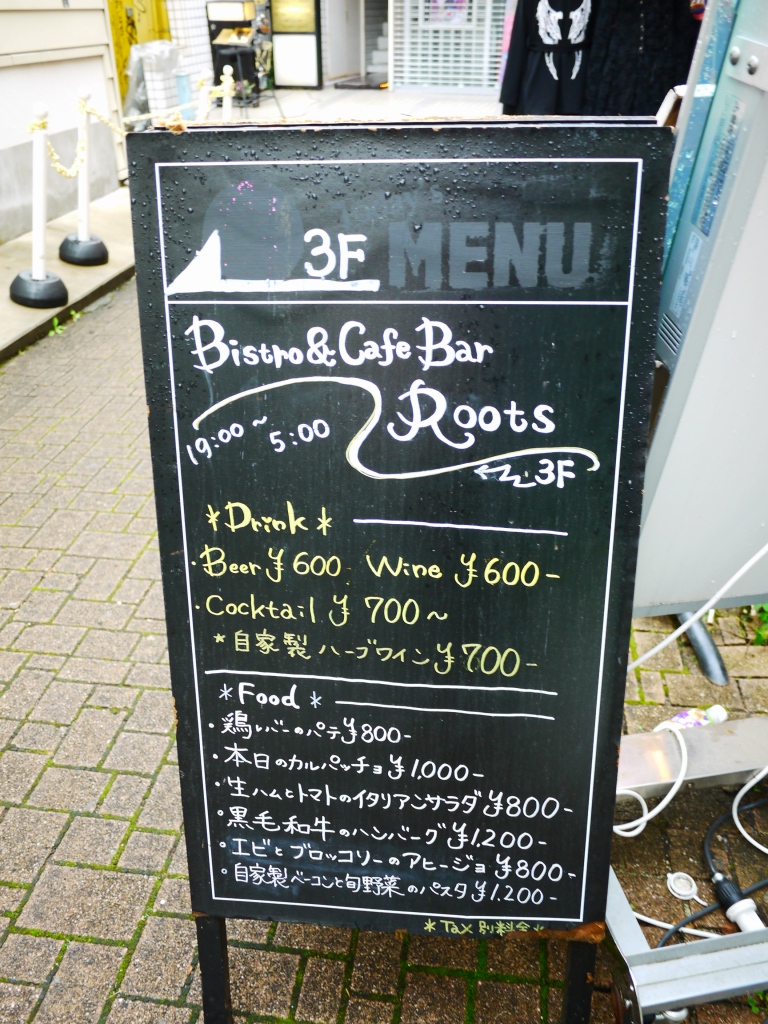 3F MENU
Bistro & Cafe Bar
Roots
19:00~5:00
3F
*Drink*
・Beer ¥600 Wine ¥600-
・Cocktail ¥700~
*自家製ハーブワイン¥700-
*Food*
・鶏レバーのパテ¥800-
・本日のカルパッチョ¥1,000-
・生ハムとトマトのイタリアンサラダ¥800-
・黒毛和牛のハンバーグ¥1,200-
・エビとブロッコリーのアヒージョ¥800-
・自家製ベーコンと旬野菜のパスタ¥1,200-
*Tax 別料金*